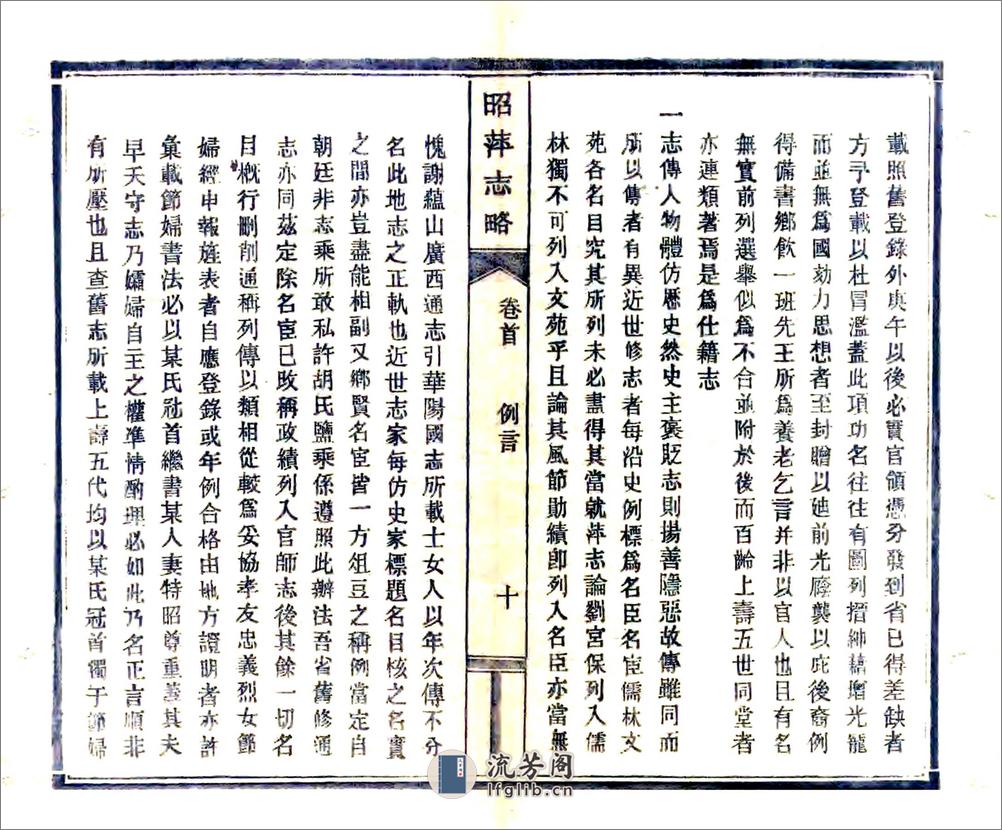 載照舊登錄外庚午以後必實官領憑分發到省已得差缺者
方予登載以杜冒濫蓋此項功名往往有圖列搢紳藉增光寵
而並無爲國効力思想者至封贈以妣前光廕襲以庇後裔例
得備書鄉飲一班先王所爲養老乞言并非以官人也且有名
無實前列選舉似爲不合並附於後而百齡上壽五世同堂者
亦連類著焉是爲仕籍志
一志傳人物體仿歷史然史主褒貶志則揚善隱惡故傳雖同而
所以傳者有異近世修志者每沿史例標爲名臣名宦儒林文
苑各名目究其所列未必盡得其當就萍志論劉宮保列入儒
林獨不可列入文苑乎且論其風節勛績卽列入名臣亦當無
昭萍志略
卷首 例言 十
愧謝蘊山廣西通志引華陽國志所載士女人以年次傳不分
名此地志之正軌也近世志家每仿史家標題名目核之名實
之間亦豈盡能相副又鄉賢名宦皆一方俎豆之稱例當定自
朝廷非志乘所敢私許胡氏鹽乘係遵照此辦法吾省舊修通
志亦同茲定除名宦已改稱政績列入官師志後其餘一切名
目概行刪削通稱列傳以類相從較爲妥協孝友忠義烈女節
婦經申報旌表者自應登錄或年例合格由地方證明者亦許
彙載節婦書法必以某氏冠首繼書某人妻特昭尊重蓋其夫
早夭守志乃孀婦自主之權準情酌理必如此乃名正言順非
有所壓也且查舊志所載上壽五代均以某氏冠首獨于節婦
流芳阁
lfglib.cn